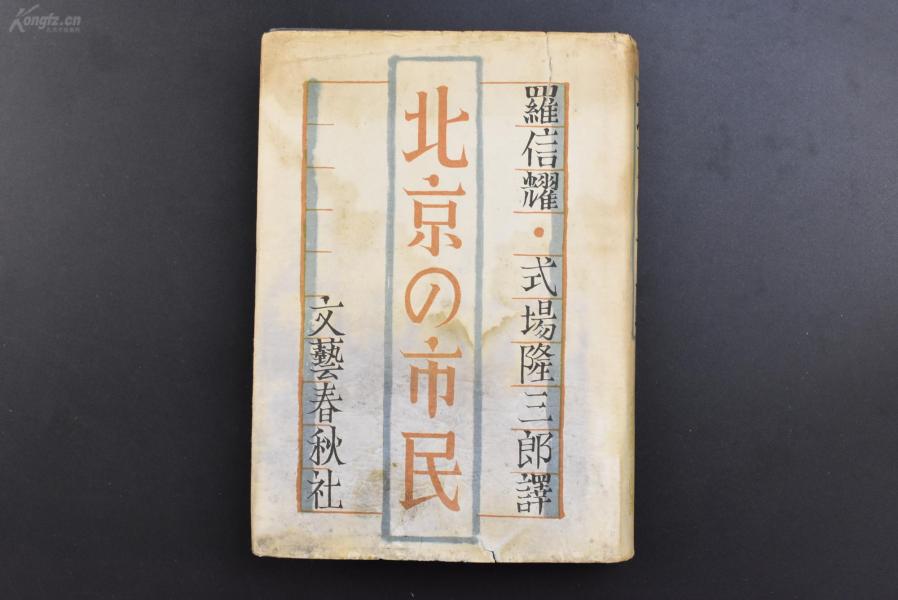 羅信耀・式場隆三郎譯
北京の市民
文藝春秋社
Kongfz.cn